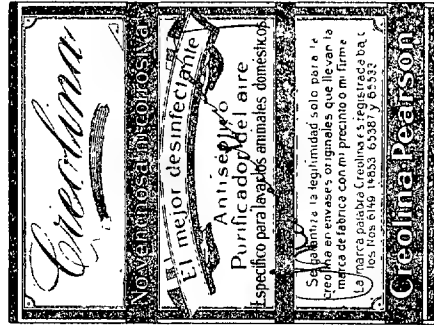 Creolina
No venenosa ni corrosiva
El mejor desinfectante
Antiséptico
Purificador del aire
Específico para lavar los animales domésticos
Se garantiza la legitimidad solo para la
creolina en envases originales que llevan la
marca de fabrica con mi precinto o mi firma
La marca palabra Creolina es registrada bajo
los Nos 6149 14853 65387 y 65533
Creolina Pearson